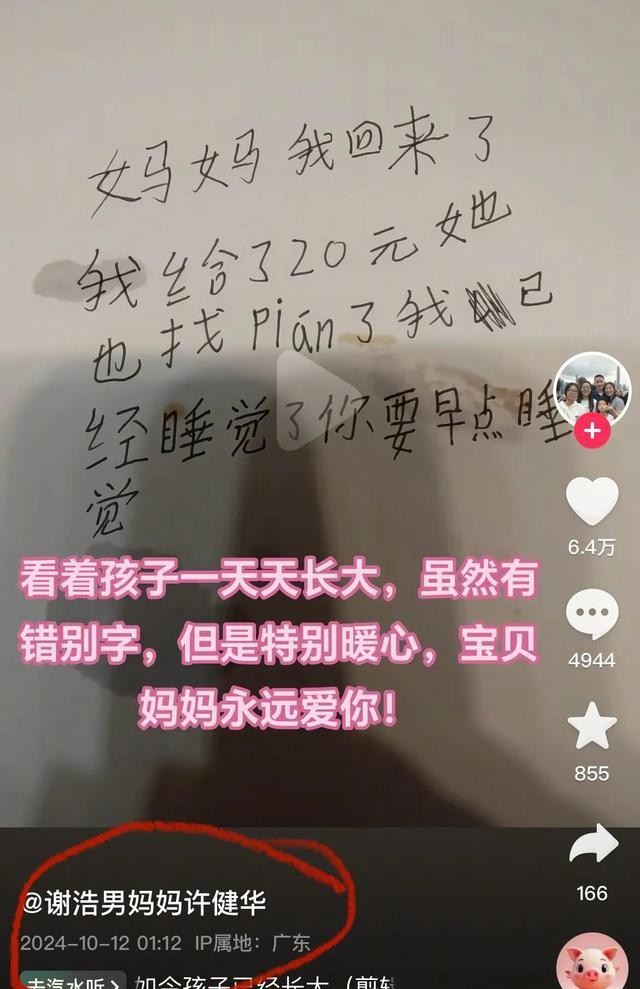 妈妈我回来了
我给了20元她
也找Pián了我 已
经睡觉了你要早点睡
觉
看着孩子一天天长大，虽然有
错别字，但是特别暖心，宝贝
妈妈永远爱你！
6.4万
4944
855
166
@谢浩男妈妈许健华
2024-10-12 01:12 IP属地：广东
去汽水听 > 如今孩子已经长大（剪辑